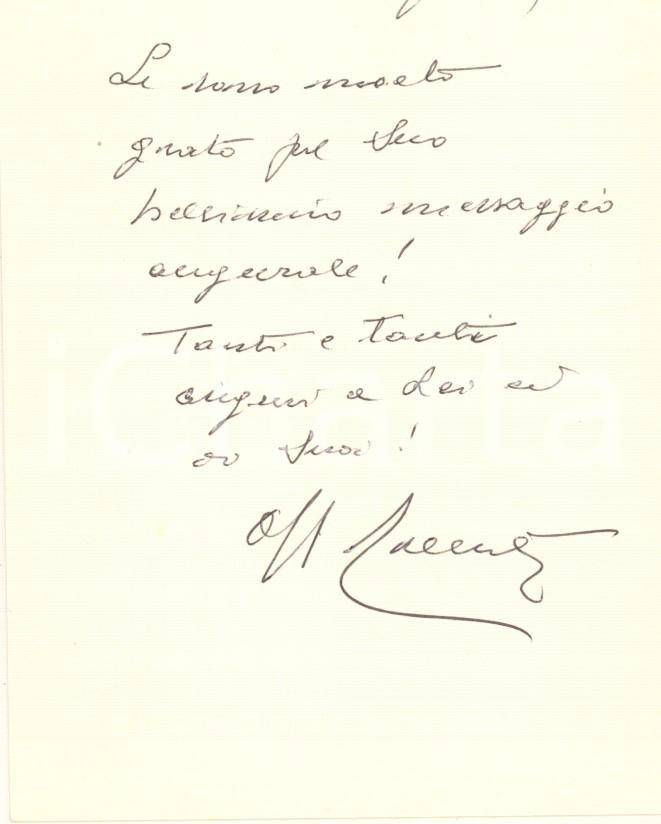 Le sono molto
grato per Suo
bellissimo messaggio
augurale!
Tanti e tanti
auguri a Lei ed
ai Suoi!
iCharta